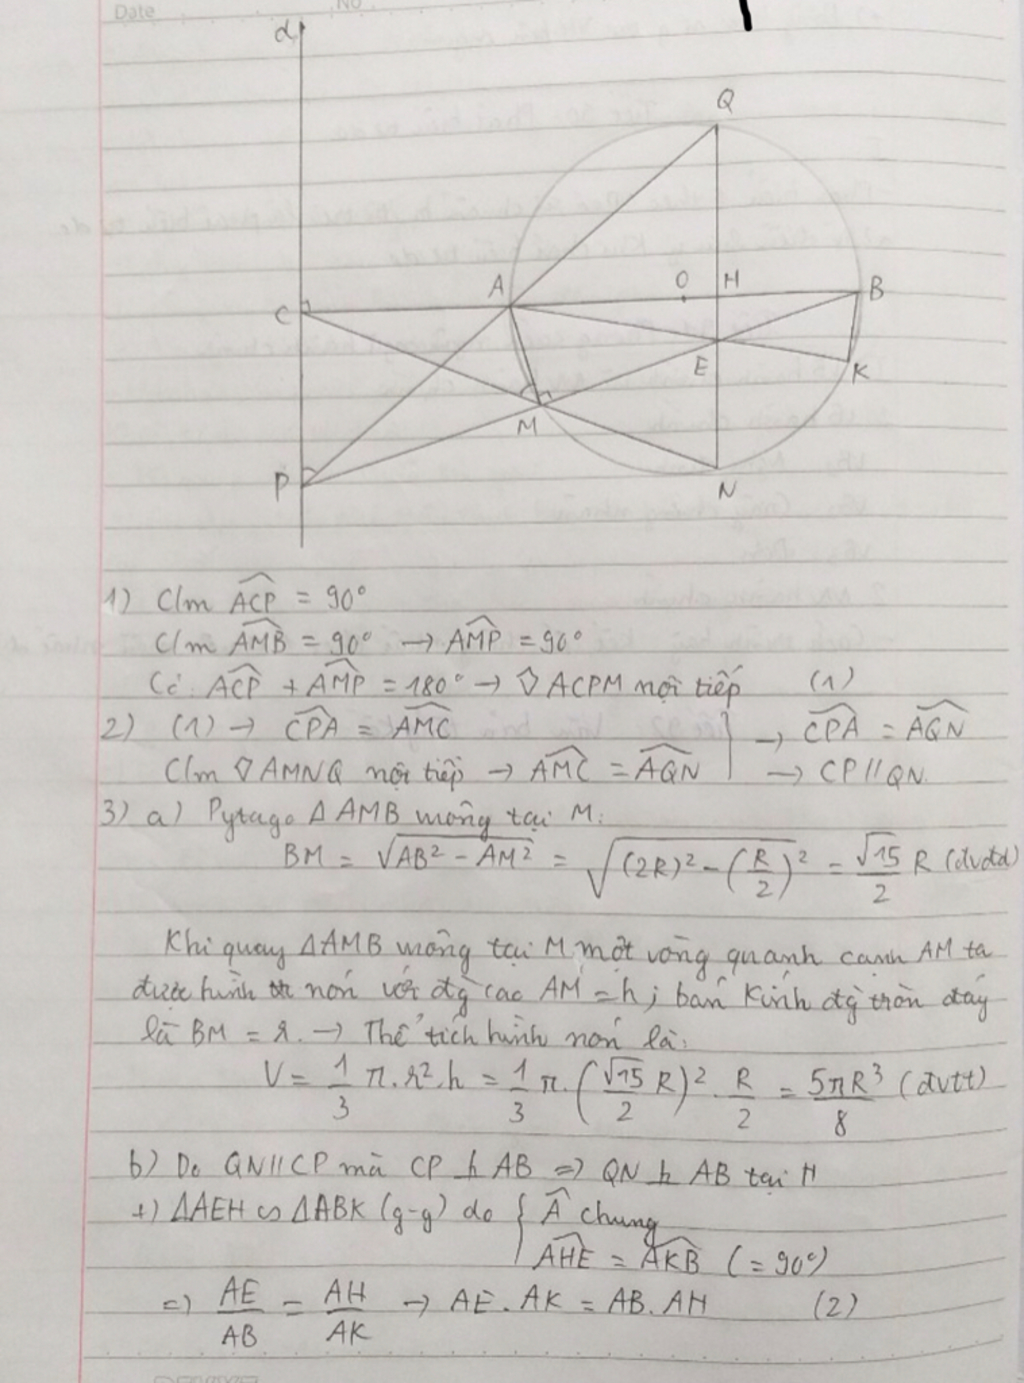 Date No
d
Q
C A O H B
E K
M
P N
1) C/m ∠ACP = 90°
C/m ∠AMB = 90° → ∠AMP = 90°
Có: ∠ACP + ∠AMP = 180° → ◊ ACPM nội tiếp (1)
2) (1) → ∠CPA = ∠AMC } → ∠CPA = ∠AQN
C/m ◊ AMNQ nội tiếp → ∠AMC = ∠AQN → CP // QN.
3) a) Pytago Δ AMB vuông tại M:
BM = √(AB² - AM²) = √((2R)² - (R/2)²) = √15/2 R (đvđd)
Khi quay ΔAMB vuông tại M một vòng quanh cạnh AM ta
được hình nón với đg cao AM = h; bán kính đg tròn đáy
là BM = r. → Thể tích hình nón là:
V = 1/3 π.r².h = 1/3 π.(√15/2 R)². R/2 = 5πR³/8 (đvtt)
b) Do QN // CP mà CP ⊥ AB => QN ⊥ AB tại H
+) ΔAEH ∽ ΔABK (g-g) do { Â chung
∠AHE = ∠AKB (= 90°)
=> AE/AB = AH/AK → AE. AK = AB. AH (2)